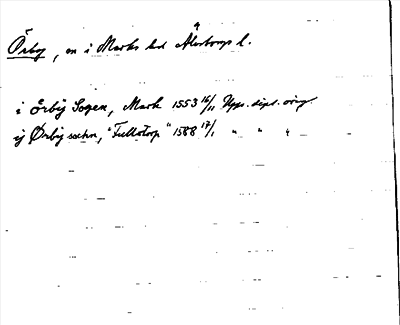 Örby, sn i Marks hd Älvsborgs l.
i Örby Sogen, Mark 1553 16/11 Upps. dipl. orig.
ij Ørby sochn, "Fullstorp" 1588 17/1 " " "